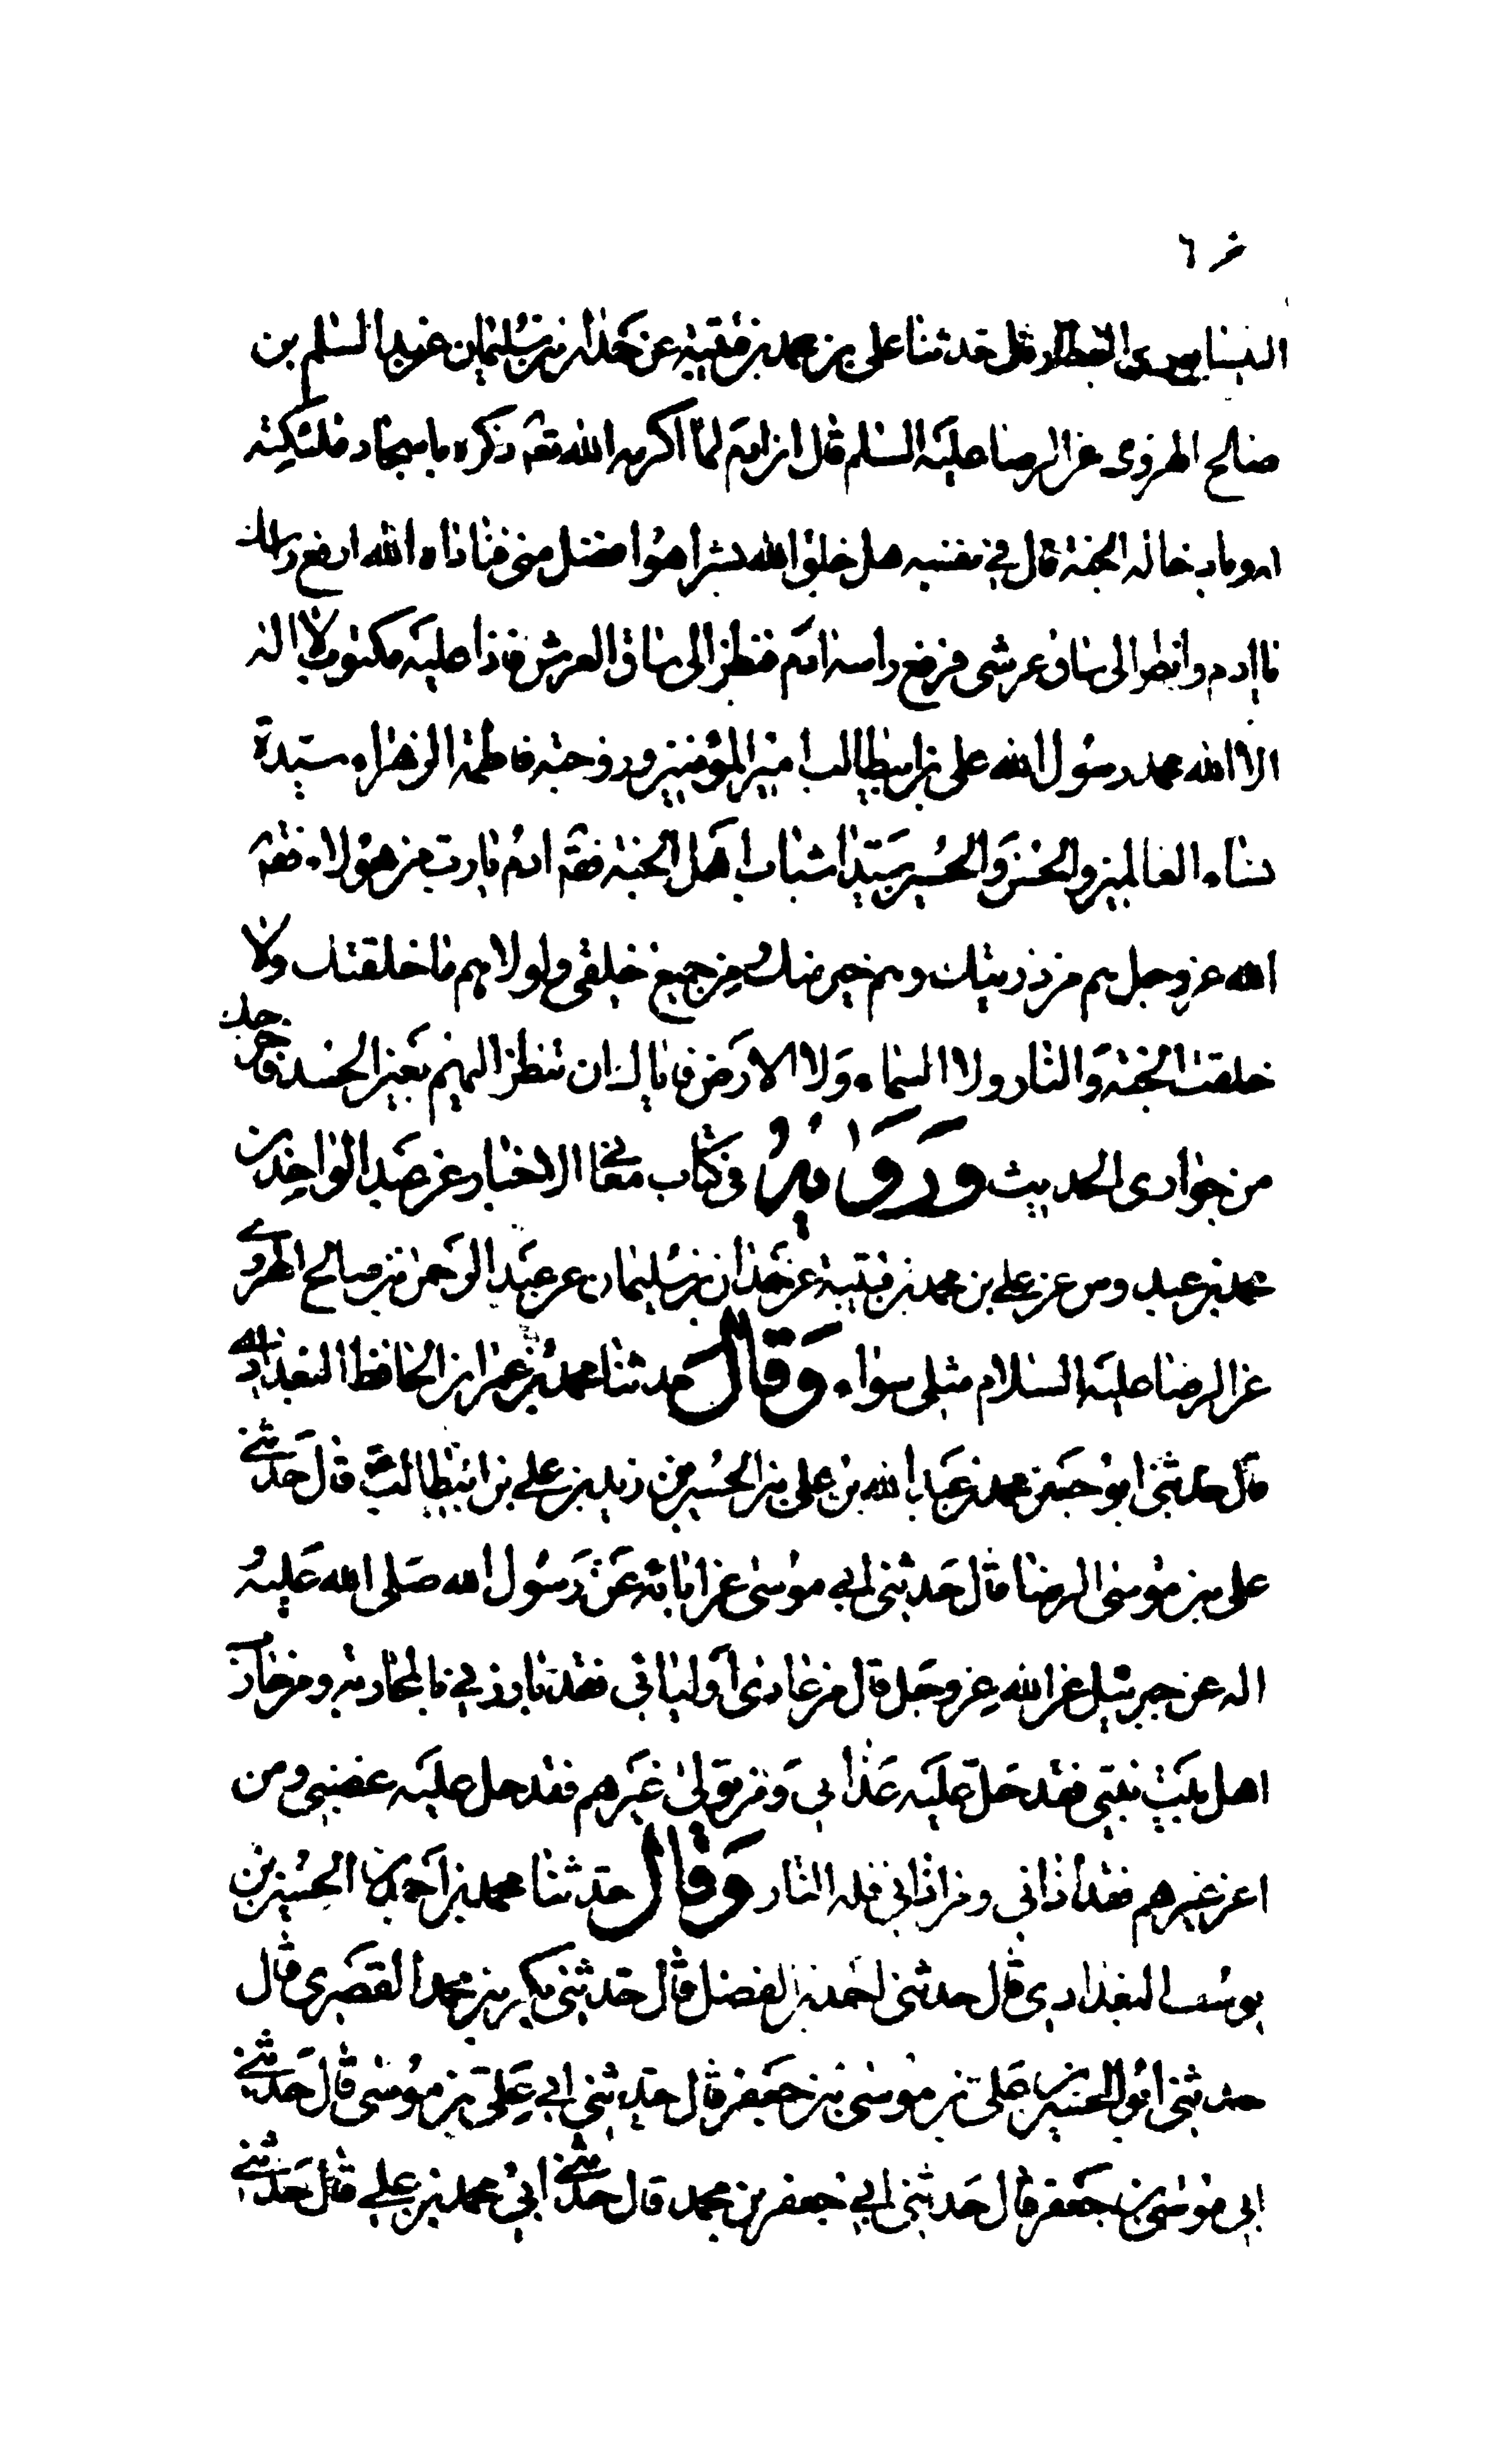 النيسابوري العطار قال حدثنا علي بن محمد بن قتيبة عن حمدان بن سليمان عن عبد السلم بن
صالح الهروي عن الرضا عليه السلم قال ان ادم لما اكرمه الله تعه ذكره باسجاد ملئكته
له وبادخاله الجنة قال في نفسه هل خلق الله بشرا هو افضل مني فناداه الله ارفع راسك
يا ادم وانظر الى ساق عرشي فرفع راسه ادم فنظر الى ساق العرش فاذا عليه مكتوب لا اله
الا الله محمد رسول الله علي بن ابيطالب امير المؤمنين وزوجته فاطمة الزهراء سيدة
نساء العالمين والحسن والحسين سيدا شباب اهل الجنة فقه ادم يا رب من هؤلاء فقه
الله عز وجل هم من ذريتك وهم خير منك ومن جميع خلقي ولولاهم ما خلقتك ولا
خلقت الجنة والنار ولا السماء ولا الارض فاياك ان تنظر اليهم بعين الحسد فاخرجك
من جواري الحديث ورواه في كتاب معاني الاخبار عن عبد الواحد بن
محمد بن عبدوس عن علي بن محمد بن قتيبة عن حمدان بن سليمان عن عبد الرحمن بن صالح الهروي
عن الرضا عليه السلام مثله سواء وقال حدثنا محمد بن عمر بن الحافظ البغدادي
قال حدثني ابو محمد بن عبد الله بن علي بن الحسين بن زيد بن علي بن ابيطالب قال حدثني
علي بن موسى الرضا قال حدثني ابي موسى عن ابائه عن رسول الله صلى الله عليه
اله عن جبرئيل عن الله عز وجل قال من عادى اوليائي فقد بارزني بالمحاربة ومن حارب
اهل بيت نبيي فقد حل عليه عذابي ومن تولى غيرهم فقد حل عليه غضبي ومن
اعز غيرهم فقد اذاني ومن اذاني فله النار وقال حدثنا محمد بن احمد بن الحسين بن
يوسف البغدادي قال حدثني احمد بن الفضل قال حدثني بكر بن محمد القصري قال
حدثني ابو الحسن علي بن موسى بن جعفر قال حدثني ابي علي بن موسى قال حدثني
ابي موسى بن جعفر قال حدثني ابي جعفر بن محمد قال حدثني ابي محمد بن علي قال حدثني